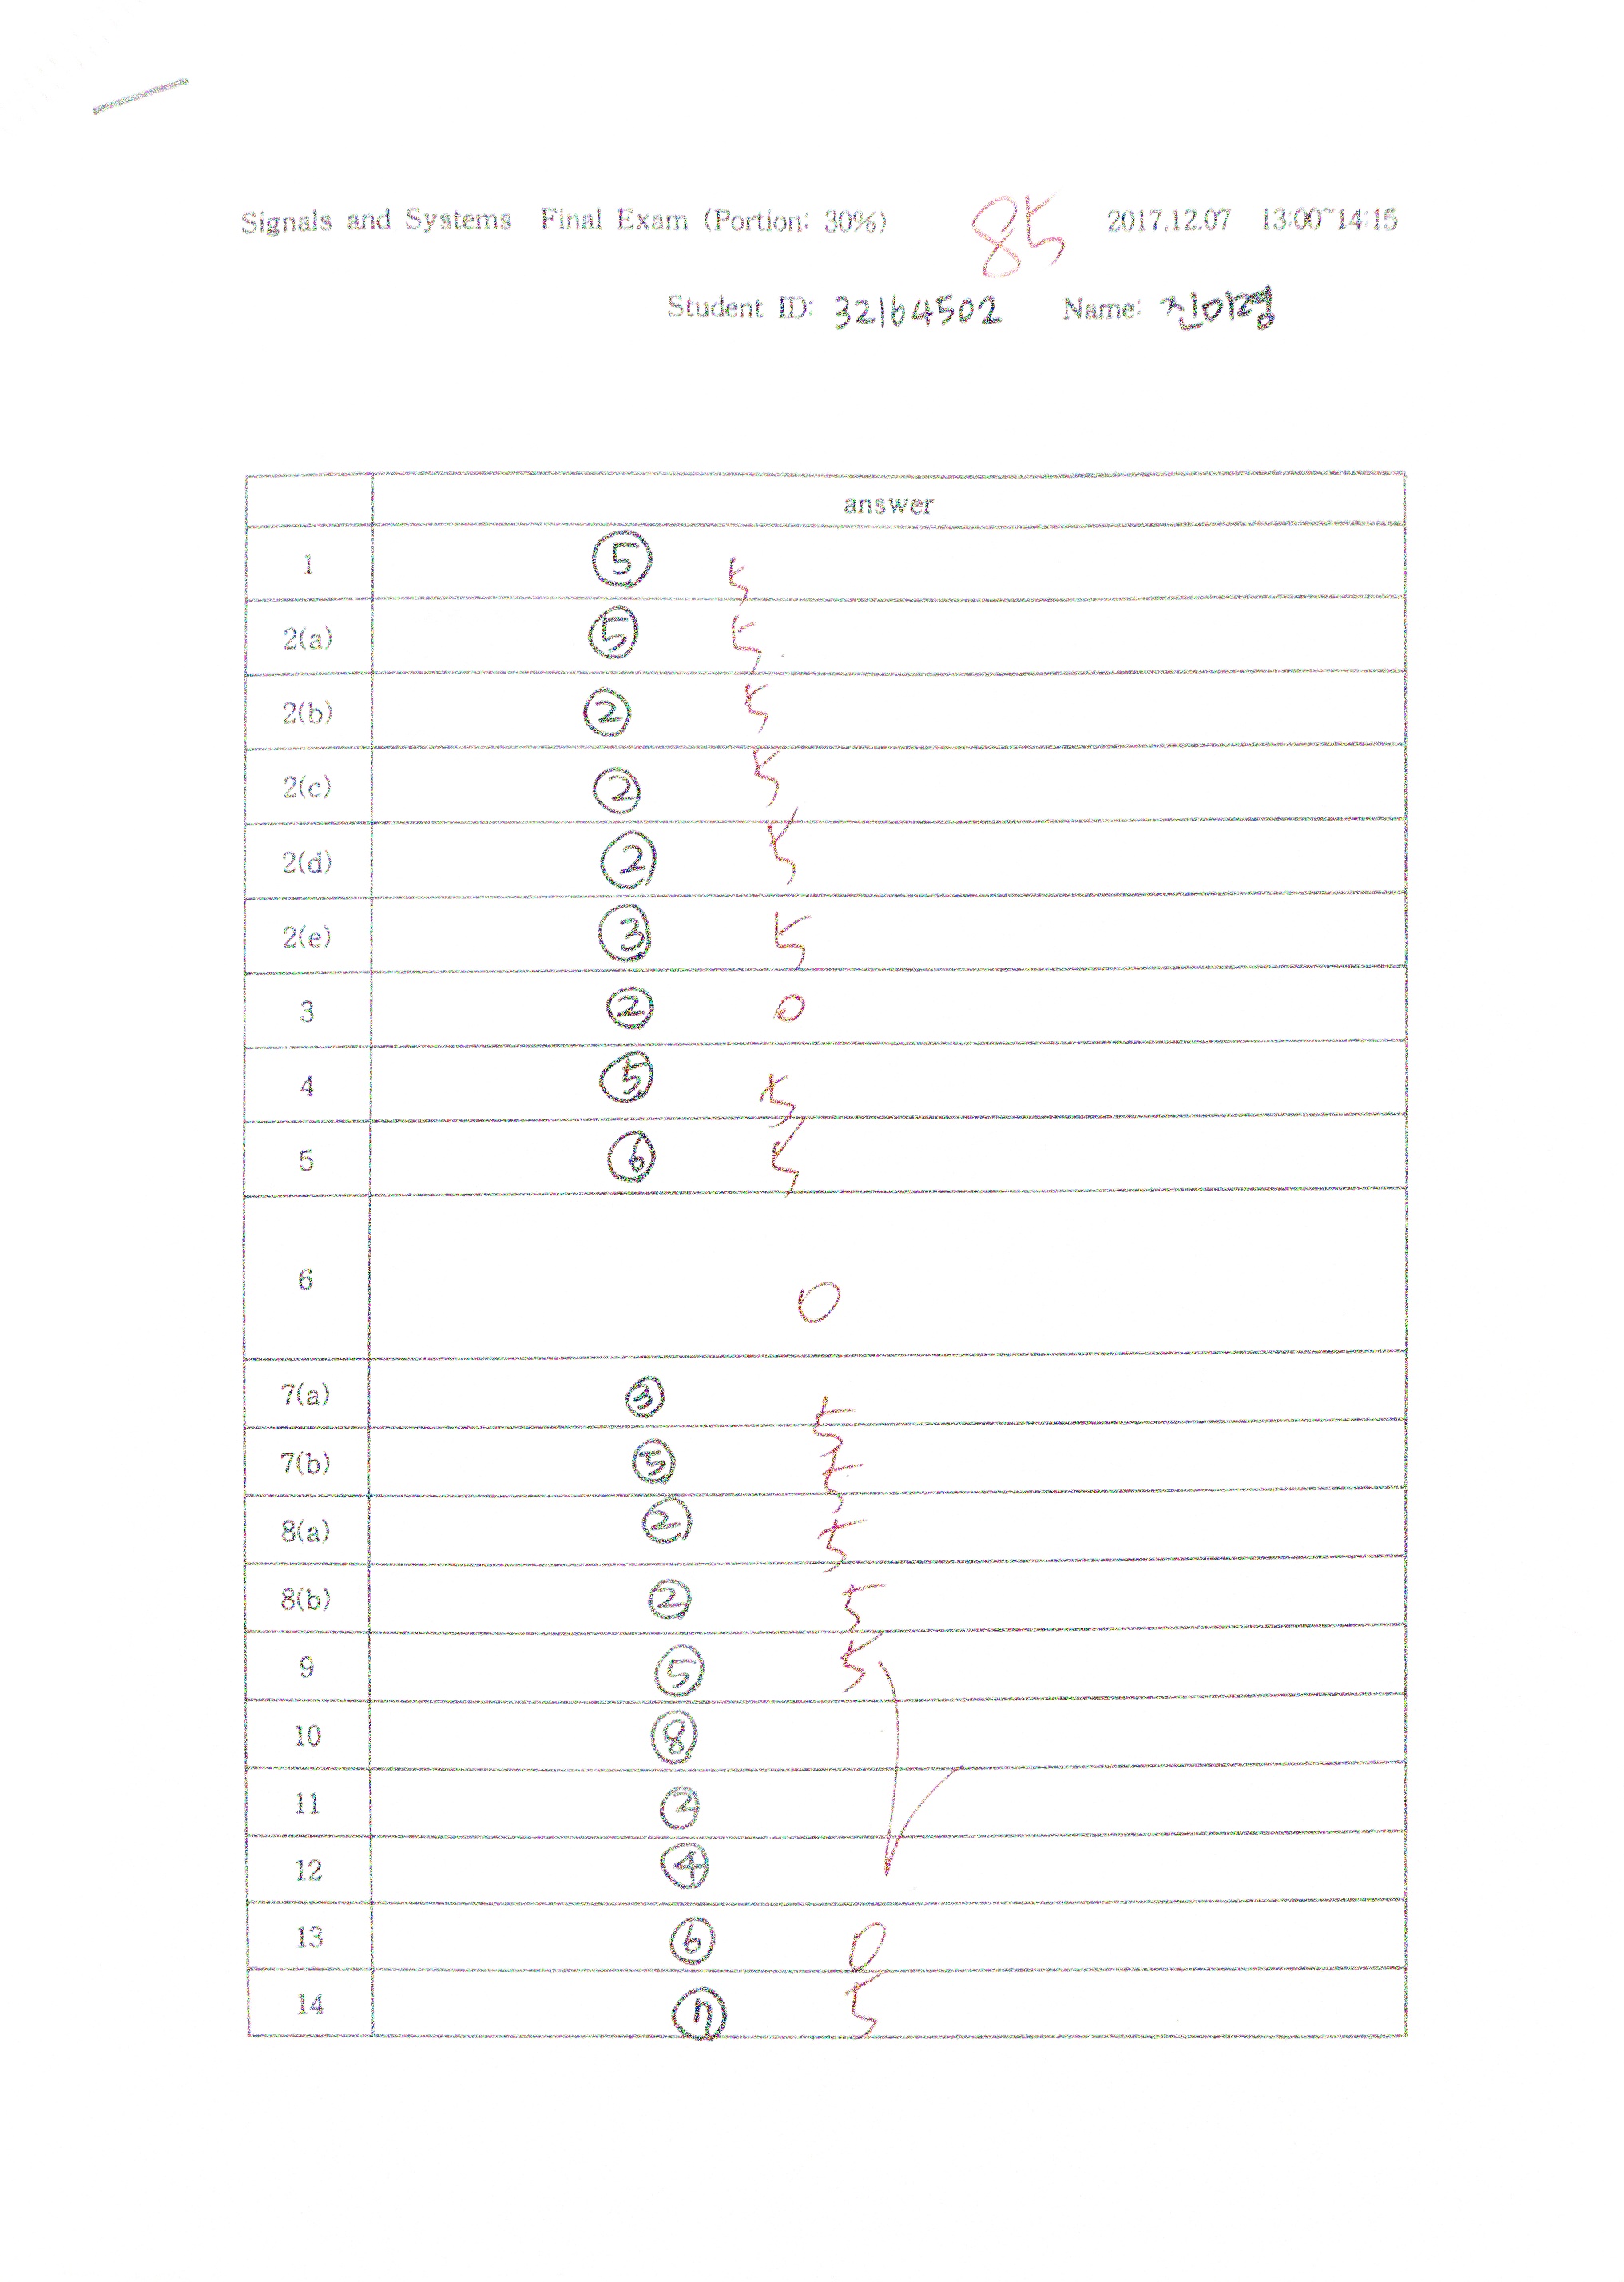 Signals and Systems Final Exam (Portion: 30%) 85 2017.12.07 13:00~14:15
Student ID: 32164502 Name: 진미경
answer
1 ⑤ 5
2(a) ⑤ 5
2(b) ② 5
2(c) ② 5
2(d) ② 5
2(e) ③ 5
3 ② 0
4 ⑤ 5
5 ⑥ 5
6 0
7(a) ③ 5
7(b) ⑤ 5
8(a) ② 5
8(b) ② 5
9 ⑤ 5
10 ⑧
11 ②
12 ④
13 ⑥ 0
14 ⑦ 5